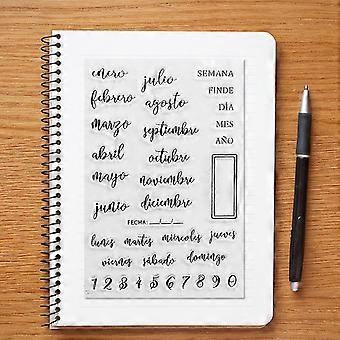 enero
febrero
marzo
abril
mayo
junio
julio
agosto
septiembre
octubre
noviembre
diciembre
SEMANA
FINDE
DÍA
MES
AÑO
FECHA: __/__/__
lunes martes miércoles jueves
viernes sábado domingo
1 2 3 4 5 6 7 8 9 0